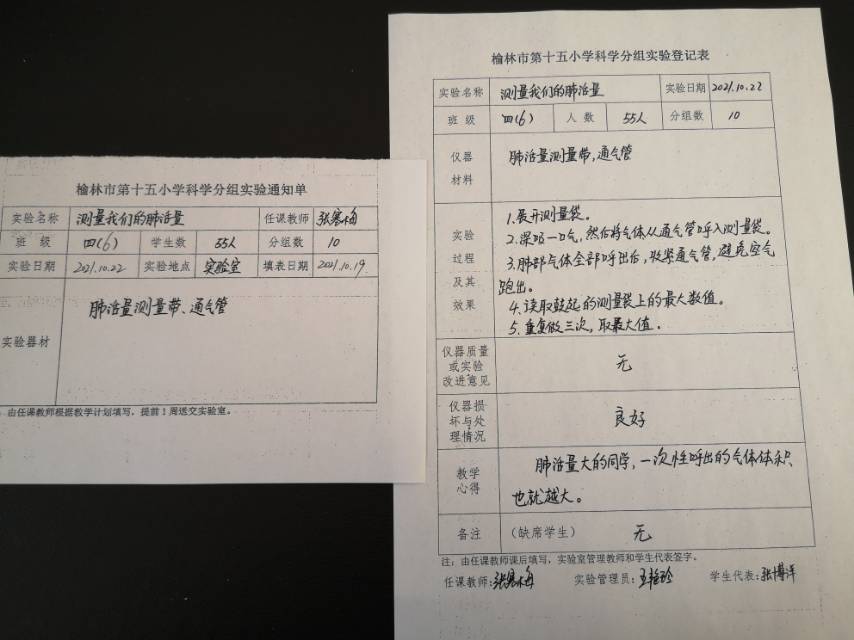 榆林市第十五小学科学分组实验通知单
实验名称 测量我们的肺活量 任课教师 张寒梅
班 级 四(6) 学生数 55人 分组数 10
实验日期 2021.10.22 实验地点 实验室 填表日期 2021.10.19
实验器材 肺活量测量带、通气管
：由任课教师根据教学计划填写，提前1周送交实验室。
榆林市第十五小学科学分组实验登记表
实验名称 测量我们的肺活量 实验日期 2021.10.22
班 级 四(6) 人 数 55人 分组数 10
仪器
材料
肺活量测量带，通气管
实验
过程
及其
效果
1.展开测量袋。
2.深吸一口气，然后将气体从通气管呼入测量袋。
3.肺部气体全部呼出后，收紧通气管，避免空气
跑出。
4.读取鼓起的测量袋上的最大数值。
5.重复做三次，取最大值。
仪器质量
或实验
改进意见
无
仪器损
坏与处
理情况
良好
教学
心得
肺活量大的同学，一次性呼出的气体体积
也就越大。
备注 (缺席学生) 无
注：由任课教师课后填写，实验室管理教师和学生代表签字。
任课教师:张寒梅 实验管理员：王艳玲 学生代表:张博洋